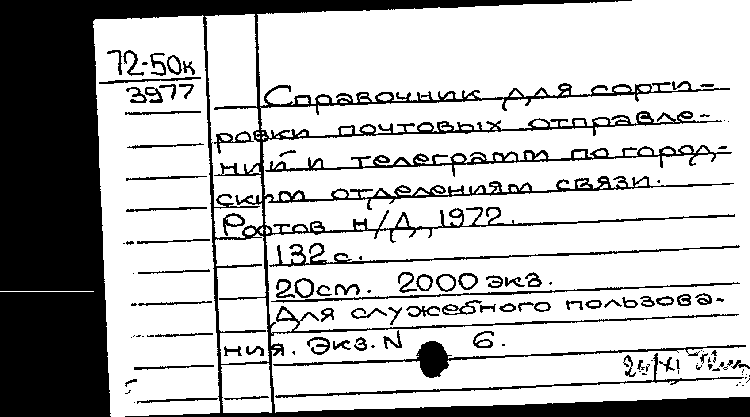 72-50к
3977
Справочник для сорти-
ровки почтовых отправле-
ний и телеграмм по город-
ским отделениям связи.
Ростов н/Д, 1972.
132 с.
20см. 2000 экз.
Для служебного пользова-
ния. Экз. N 6.